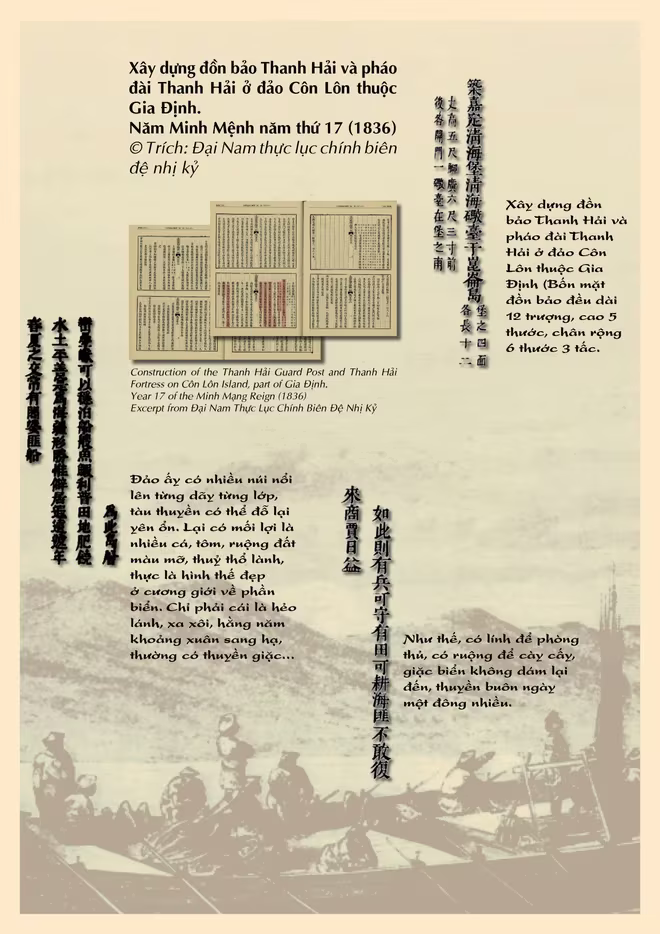 Xây dựng đồn bảo Thanh Hải và pháo
đài Thanh Hải ở đảo Côn Lôn thuộc
Gia Định.
Năm Minh Mệnh năm thứ 17 (1836)
© Trích: Đại Nam thực lục chính biên
đệ nhị kỷ
築嘉定清海堡清海礮臺于崑崙島
堡之四面
各長十二
丈高五尺脚廣六尺三寸前
後各開門一礮臺在堡之南
Xây dựng đồn
bảo Thanh Hải và
pháo đài Thanh
Hải ở đảo Côn
Lôn thuộc Gia
Định (Bốn mặt
đồn bảo đều dài
12 trượng, cao 5
thước, chân rộng
6 thước 3 tấc.
Construction of the Thanh Hải Guard Post and Thanh Hải
Fortress on Côn Lôn Island, part of Gia Định.
Year 17 of the Minh Mạng Reign (1836)
Excerpt from Đại Nam Thực Lục Chính Biên Đệ Nhị Kỷ
島層
巒疊巘可以穩泊船艘魚鰕利普田地肥饒
水土平善寔爲海疆形勝惟僻居遐遠年
春夏之交常有闍婆匪船
Đảo ấy có nhiều núi nổi
lên từng dãy từng lớp,
tàu thuyền có thể đỗ lại
yên ổn. Lại có mối lợi là
nhiều cá, tôm, ruộng đất
màu mỡ, thuỷ thổ lành,
thực là hình thế đẹp
ở cương giới về phần
biển. Chỉ phải cái là hẻo
lánh, xa xôi, hằng năm
khoảng xuân sang hạ,
thường có thuyền giặc...
如此則有兵可守有田可耕海匪不敢復
來商賈日益
Như thế, có lính để phòng
thủ, có ruộng để cày cấy,
giặc biển không dám lại
đến, thuyền buôn ngày
một đông nhiều.